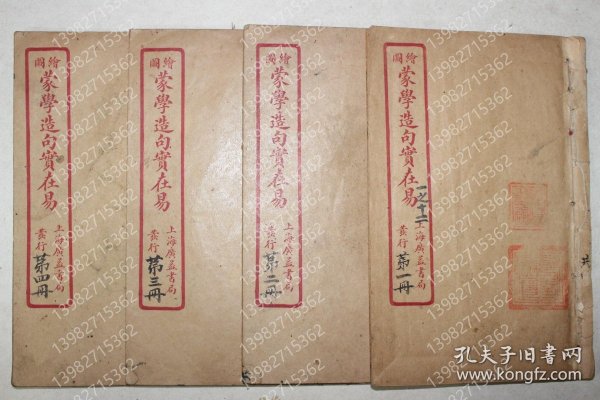 繪圖
蒙學造句實在易
一之十二
上海廣益書局
發行
第一冊
共
繪圖
蒙學造句實在易
上海廣益書局
發行
第二冊
繪圖
蒙學造句實在易
上海廣益書局
發行
第三冊
繪圖
蒙學造句實在易
上海廣益書局
發行
第四冊
13982715362
孔夫子旧书网
www.kongfz.com